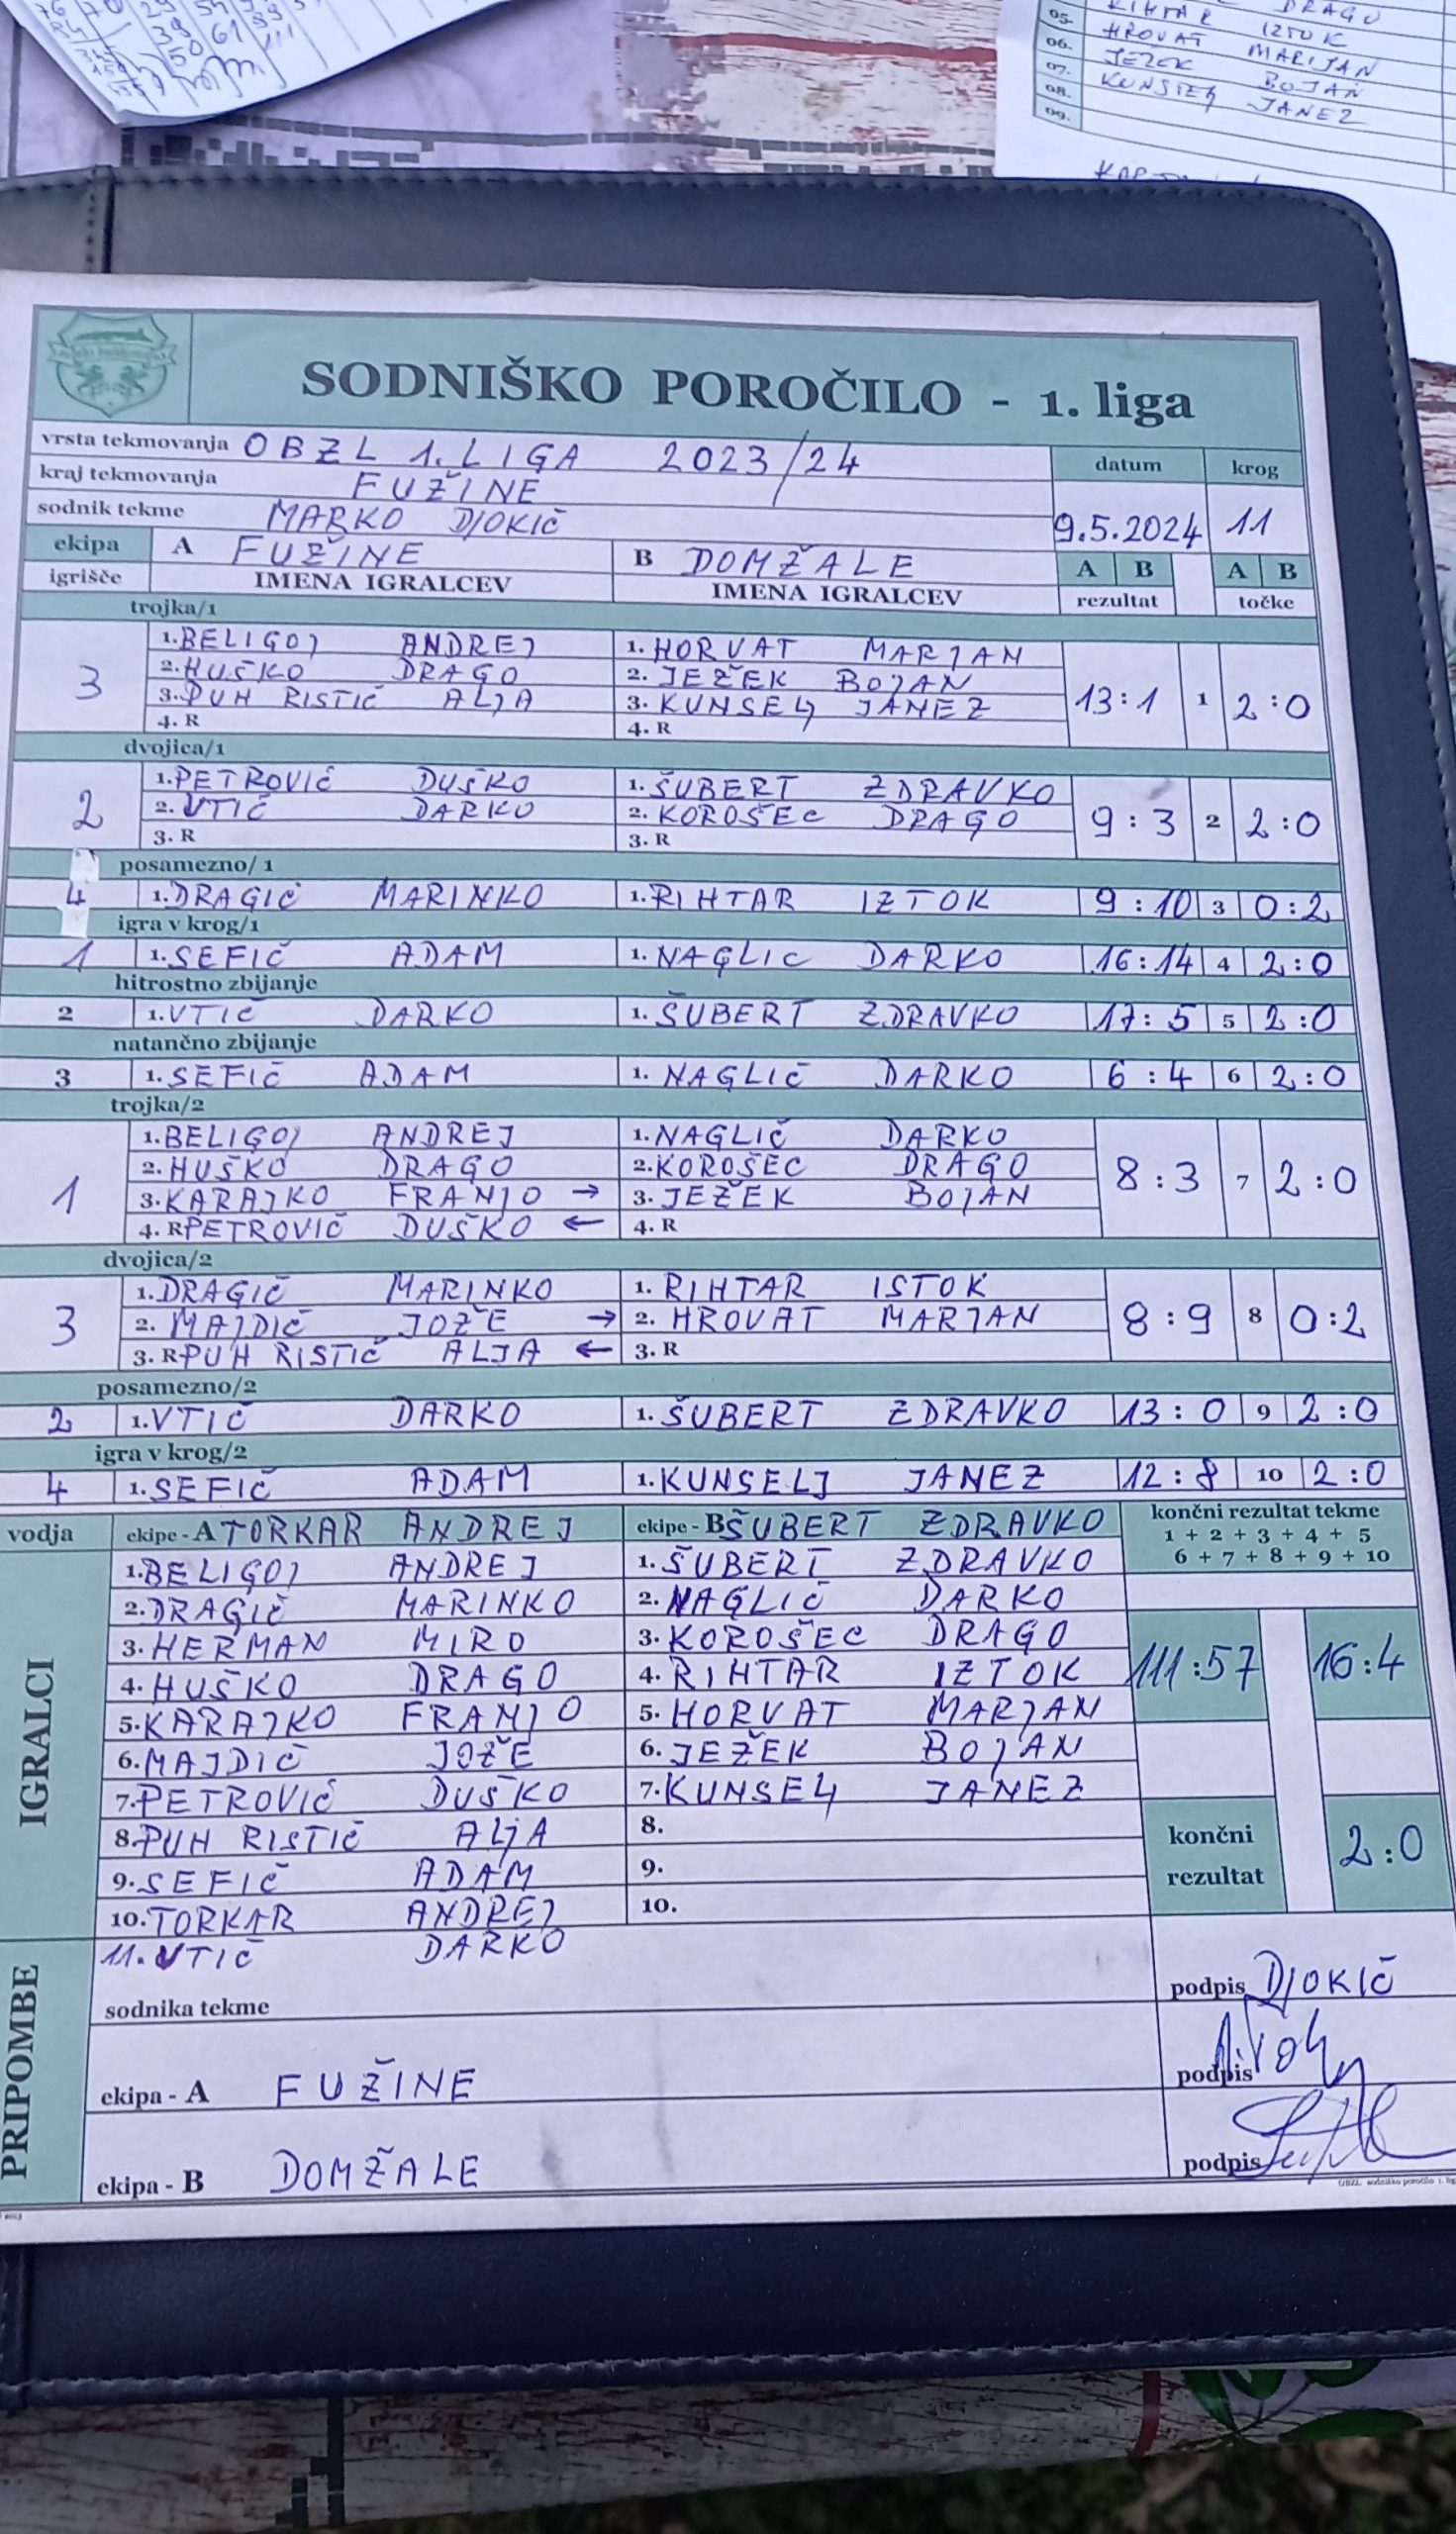 05. RIHTAR IZTOK
06. HROVAT MARIJAN
07. JEŽEK BOJAN
08. KUNŠELJ JANEZ
09.
DRAGO
SODNIŠKO POROČILO - 1. liga
vrsta tekmovanja OBZL 1. LIGA 2023/24
datum krog
kraj tekmovanja FUŽINE
sodnik tekme MARKO DJOKIČ
9.5.2024 11
ekipa A FUŽINE B DOMŽALE A B A B
igrišče IMENA IGRALCEV IMENA IGRALCEV rezultat točke
trojka/1
1. BELIGOJ ANDREJ 1. HORVAT MARJAN
2. HUŠKO DRAGO 2. JEŽEK BOJAN
3 13:1 1 2:0
3. PUH RISTIČ ALJA 3. KUNSELJ JANEZ
4. R 4. R
dvojica/1
1. PETROVIČ DUŠKO 1. ŠUBERT ZDRAVKO
2 2. VTIČ DARKO 2. KOROŠEC DRAGO 9:3 2 2:0
3. R 3. R
posamezno/1
4 1. DRAGIČ MARINKO 1. RIHTAR IZTOK 9:10 3 0:2
igra v krog/1
1 1. SEFIČ ADAM 1. NAGLIC DARKO 16:14 4 2:0
hitrostno zbijanje
2 1. VTIČ DARKO 1. ŠUBERT ZDRAVKO 17:5 5 2:0
natančno zbijanje
3 1. SEFIČ ADAM 1. NAGLIČ DARKO 6:4 6 2:0
trojka/2
1. BELIGOJ ANDREJ 1. NAGLIČ DARKO
2. HUŠKO DRAGO 2. KOROŠEC DRAGO
1 8:3 7 2:0
3. KARAJKO FRANJO → 3. JEŽEK BOJAN
4. R PETROVIČ DUŠKO ← 4. R
dvojica/2
1. DRAGIČ MARINKO 1. RIHTAR ISTOK
3 2. MAJDIČ JOŽE → 2. HROVAT MARJAN 8:9 8 0:2
3. R PUH RISTIČ ALJA ← 3. R
posamezno/2
2 1. VTIČ DARKO 1. ŠUBERT ZDRAVKO 13:0 9 2:0
igra v krog/2
4 1. SEFIČ ADAM 1. KUNSELJ JANEZ 12:8 10 2:0
vodja ekipe - A TORKAR ANDREJ ekipe - B ŠUBERT ZDRAVKO končni rezultat tekme
1 + 2 + 3 + 4 + 5
6 + 7 + 8 + 9 + 10
IGRALCI
1. BELIGOJ ANDREJ 1. ŠUBERT ZDRAVKO
2. DRAGIČ MARINKO 2. NAGLIČ DARKO
3. HERMAN MIRO 3. KOROŠEC DRAGO
4. HUŠKO DRAGO 4. RIHTAR IZTOK 111:57 16:4
5. KARAJKO FRANJO 5. HORVAT MARJAN
6. MAJDIČ JOŽE 6. JEŽEK BOJAN
7. PETROVIČ DUŠKO 7. KUNSELJ JANEZ
8. PUH RISTIČ ALJA 8.
končni rezultat 2:0
9. SEFIČ ADAM 9.
10. TORKAR ANDREJ 10.
11. VTIČ DARKO
PRIPOMBE
sodnika tekme podpis DJOKIČ
ekipa - A FUŽINE podpis
ekipa - B DOMŽALE podpis